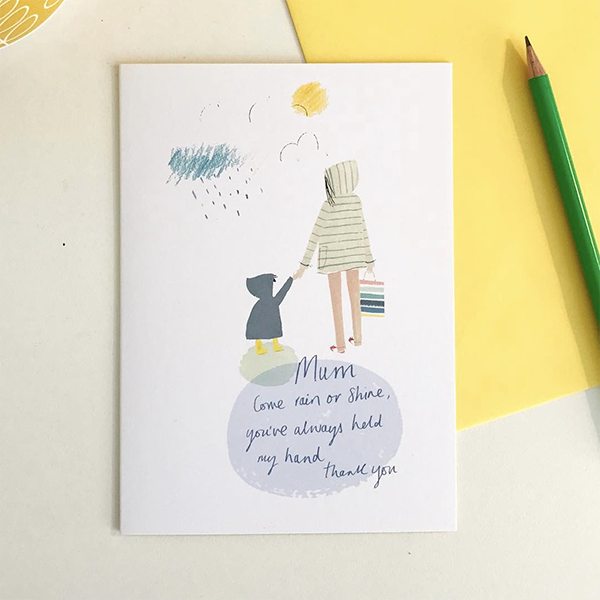 Mum
Come rain or shine,
you've always held
my hand
thank you